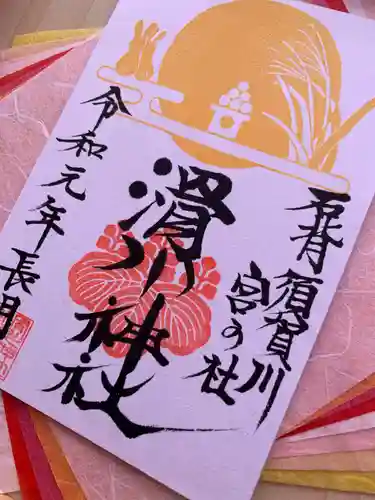 奉拝
須賀川
宮の社
滑川神社
令和元年長月